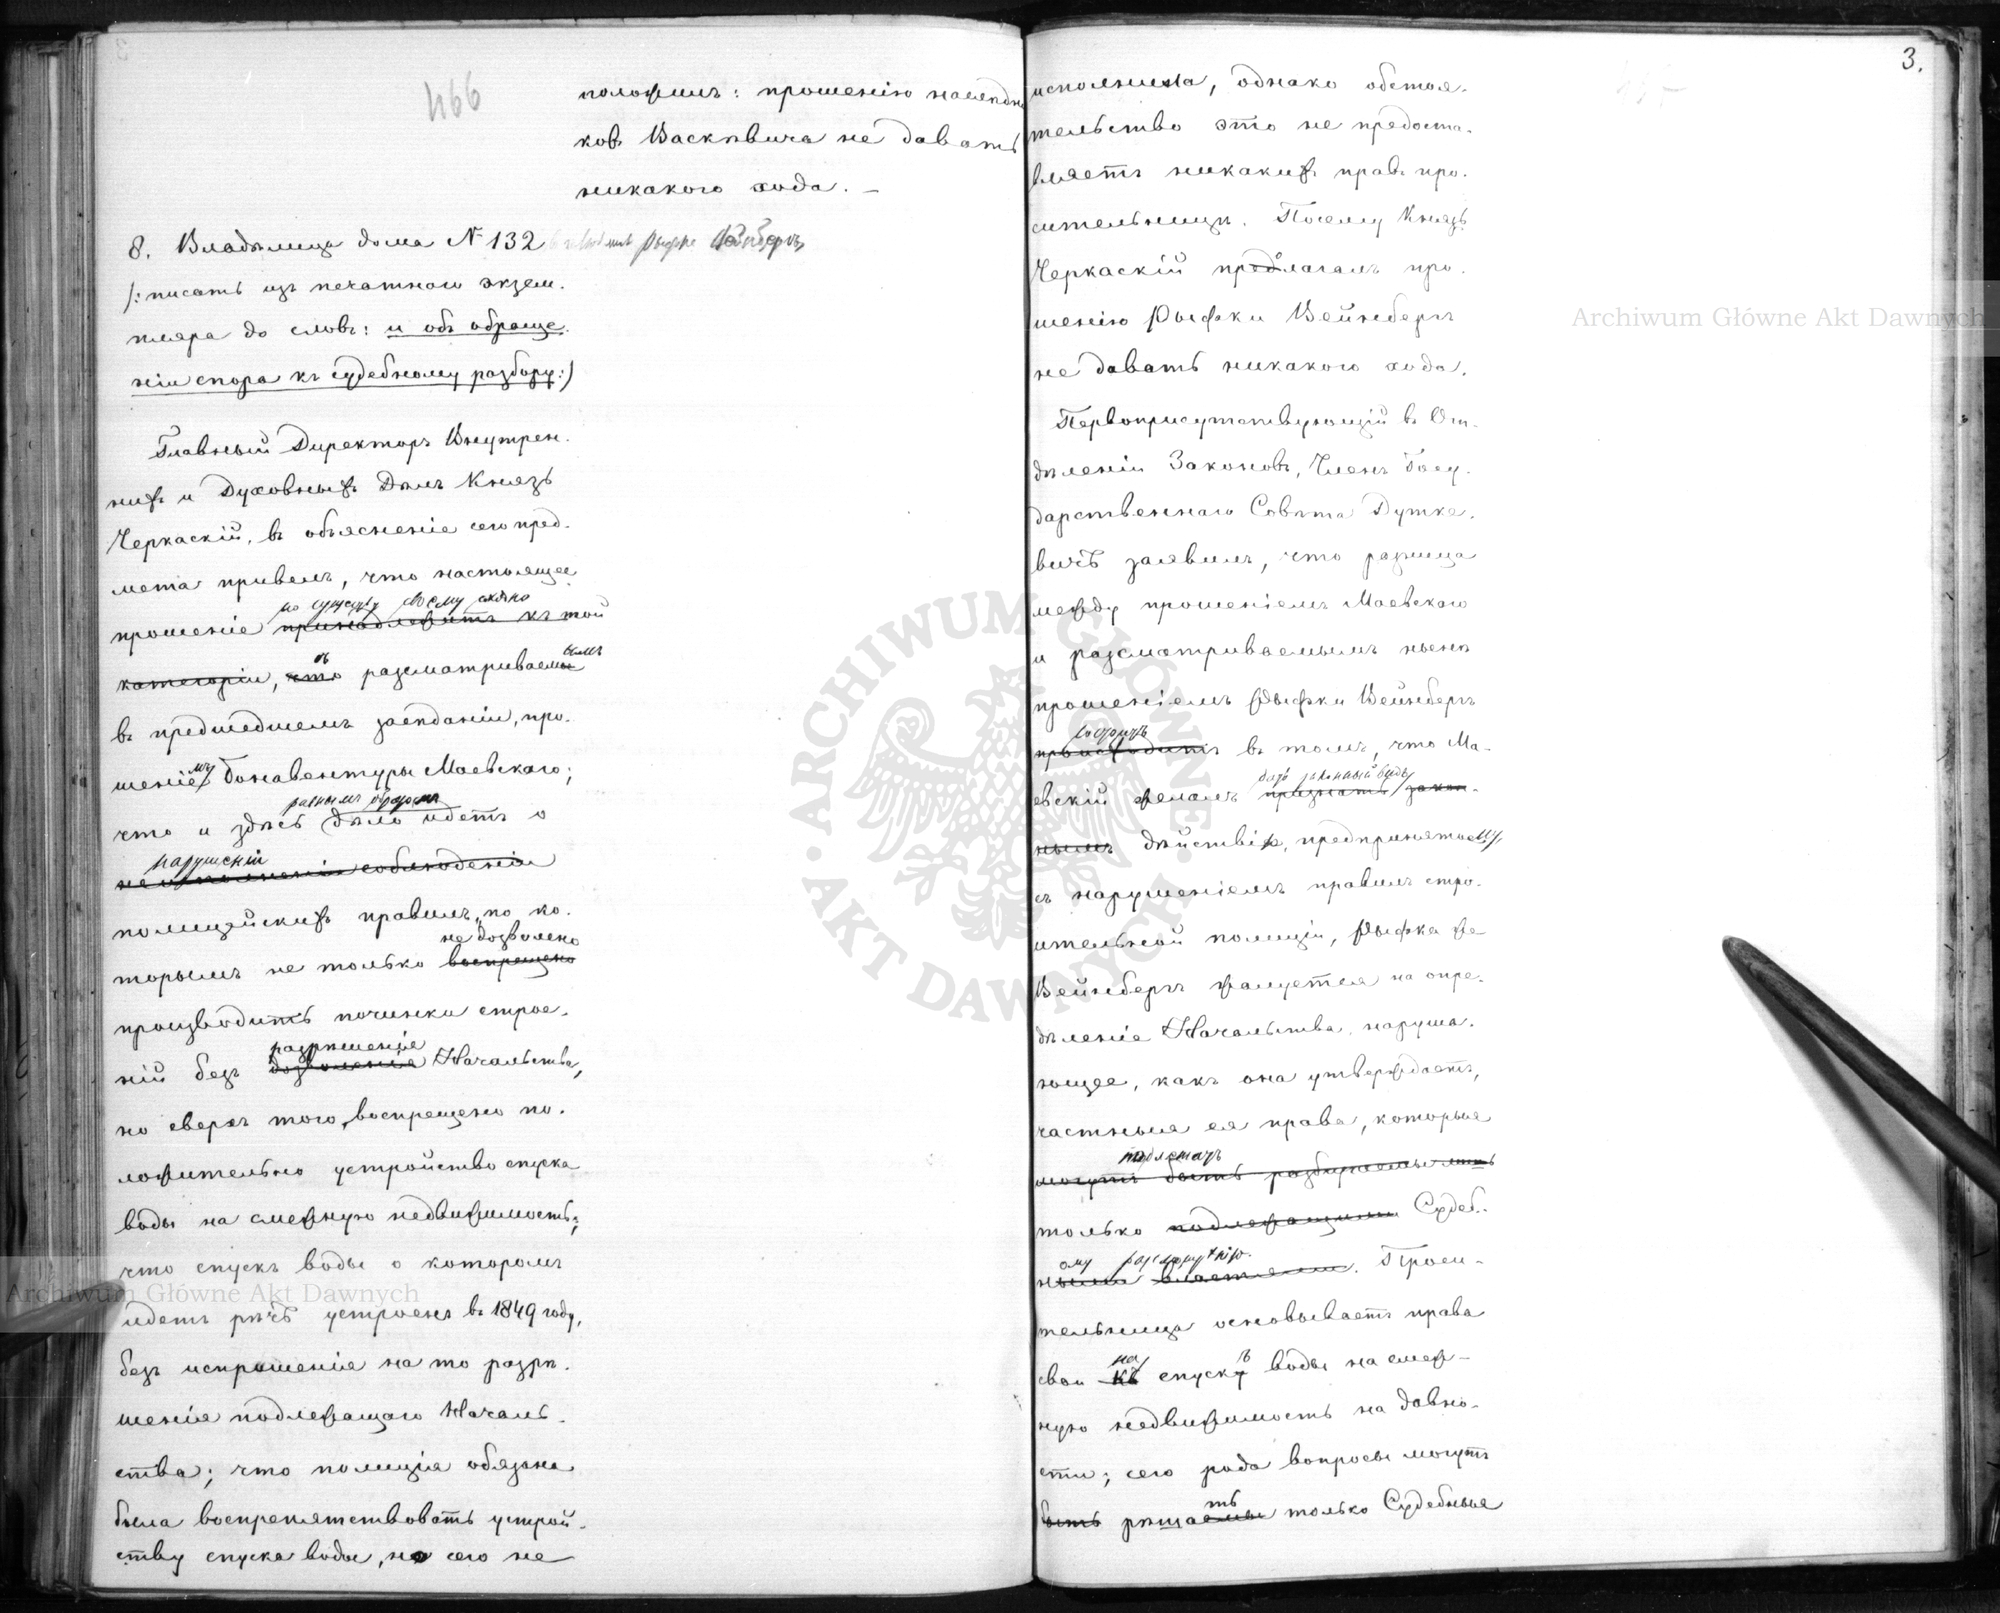 466
положилъ: прошенію наслѣдни
ковъ Васкѣвича не давать
никакого хода. —
8. Владѣлица дома № 132 Рыфка Вейнбергъ
/: писать изъ печатнаго экзем.
пляра до словъ: и объ обраще.
ніи спора къ судебному разбору:/
Главный Директоръ Внутрен.
нихъ и Духовныхъ Дѣлъ Князь
Черкаскій, въ объясненіе сего пред.
мета привелъ, что настоящее
по существу своему схоже
прошеніе принадлежитъ къ той
съ ымъ
категоріи, что разсматриваемы
въ предшедшемъ засѣданіи, про.
шеніемъ Бонавентуры Маевскаго;
равнымъ образомъ
что и здѣсь дѣло идетъ о
нарушеніи
неисполненіи соблюденіи
полицейскихъ правилъ, по ко.
не дозволено
торымъ не только воспрещено
производить починки строе.
разрѣшенія
ній безъ дозволенія Начальства,
но сверхъ того, воспрещено по.
ложительно устройство спуска
воды на смежную недвижимость;
что спускъ воды о которомъ
идетъ рѣчь устроенъ въ 1849 году,
безъ испрошенія на то разрѣ.
шенія подлежащаго Началь.
ства; что полиція обязана
была воспрепятствовать устрой.
ству спуска воды, но сего не
3.
исполнила, однако обстоя.
тельство это не предоста.
вляетъ никакихъ правъ про.
сительницѣ. Посему Князь
Черкаскій предлагалъ про.
шенію Рыфки Вейнбергъ
не давать никакого хода.
Первоприсутствующій въ От.
дѣленіи Законовъ, Членъ Госу.
дарственнаго Совѣта Дутке.
вичъ заявилъ, что разница
между прошеніемъ Маевскаго
и разсматриваемымъ нынѣ
прошеніемъ Рыфки Вейнбергъ
состоитъ
происходитъ въ томъ, что Ма-
дать законный видъ
евскій желалъ признать закон-
нымъ дѣйствію, предпринятому
съ нарушеніемъ правилъ стро.
ительной полиціи, Рыфка же
Вейнбергъ жалуется на опре.
дѣленіе Начальства, наруша.
ющее, какъ она утверждаетъ,
частныя ея права, которыя
подлежатъ
могутъ быть разбираемы лишь
только подлежащими Судеб.
ому разсмотрѣнію.
ными властями. Проси-
тельница основываетъ права
на ъ
свои къ спуску воды на смеж-
ную недвижимость на давно-
сти; сего рода вопросы могутъ
ть
быть рѣшаемы только Судебныя
Archiwum Główne Akt Dawnych
Archiwum Główne Akt Dawnych
ARCHIWUM GŁÓWNE · AKT DAWNYCH ·